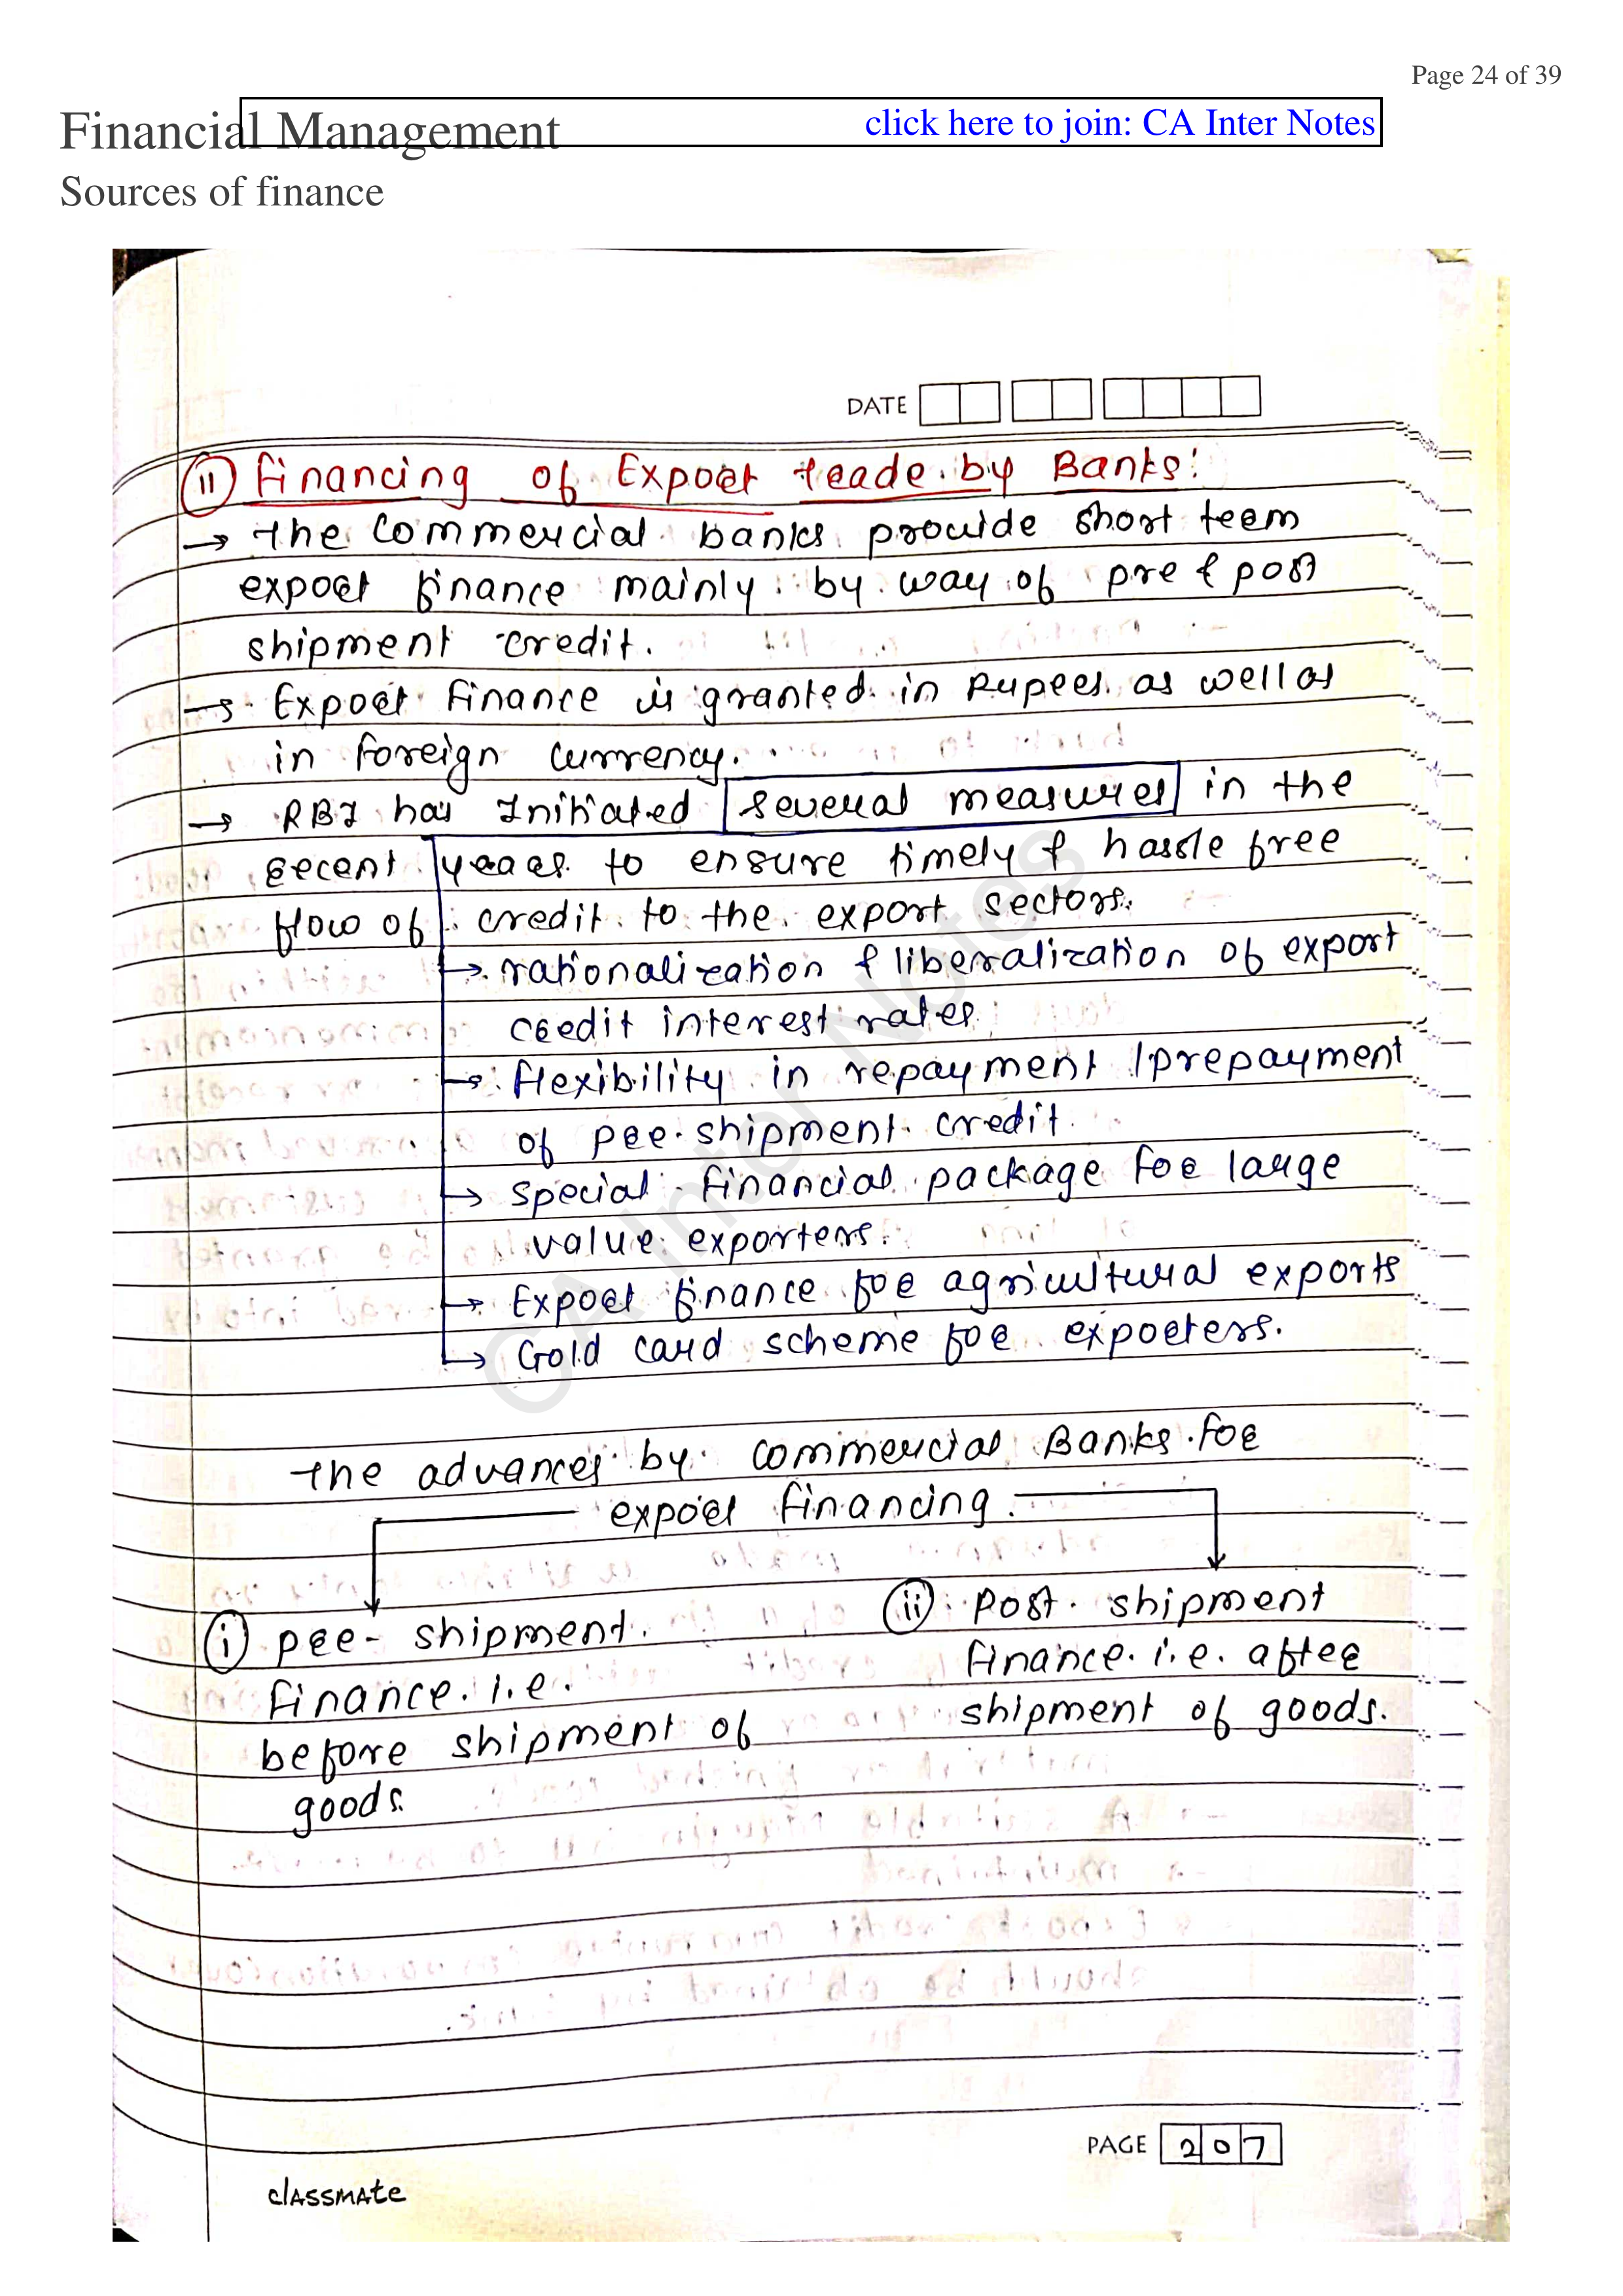 Page 24 of 39
Financial Management
click here to join: CA Inter Notes
Sources of finance
DATE
11 Financing of Export trade by Banks:
→ the commercial banks provide short term
export finance mainly by way of pre & post
shipment credit.
→ Export finance is granted in Rupees as well as
in foreign currency.
→ RBI has Initiated several measures in the
recent years to ensure timely & hassle free
flow of credit to the export sectors.
→ rationalization & liberalization of export
credit interest rates.
→ flexibility in repayment /prepayment
of pre-shipment credit.
→ special financial package for large
value exporters.
→ Export finance for agricultural exports
→ Gold card scheme for exporters.
the advances by commercial Banks for
export financing.
i pre-shipment
finance. i.e.
before shipment of
goods.
ii Post shipment
finance. i.e. after
shipment of goods.
CA Inter Notes
PAGE 207
classmate